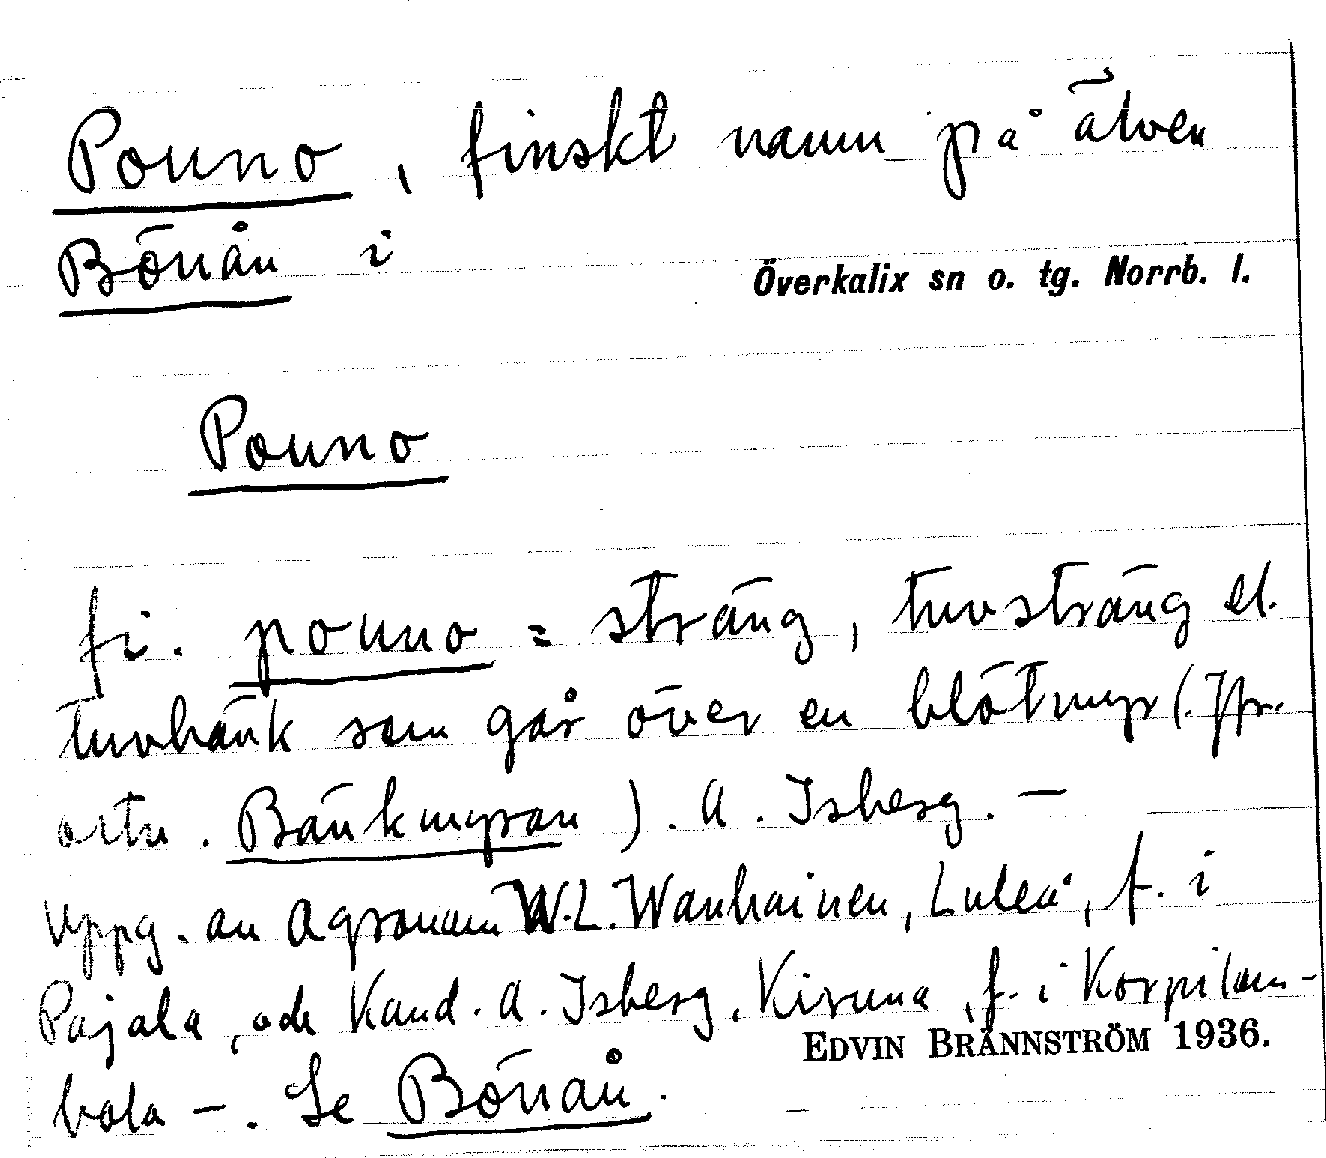 Pouno, finskt namn på älven
Bönån i
Överkalix sn o. tg. Norrb. l.
Pouno
fi. pouno = sträng, tuvsträng el.
tuvbänk som går över en blötmyr (. Jfr.
ortn. Bänkmyran ). A. Isberg. —
Uppg. av Agronom W.L. Wanhainen, Luleå, f. i
Pajala, och Kand. A. Isberg, Kiruna, f. i Korpilom-
bola —. Se Bönån.
EDVIN BRÄNNSTRÖM 1936.